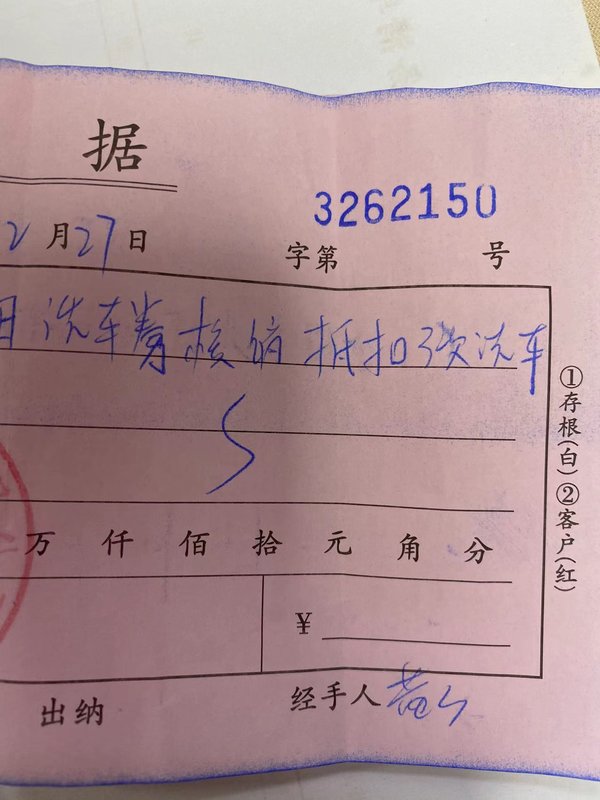 据
3262150
2月27日
字第 号
洗车券核销抵扣3次洗车
万 仟 佰 拾 元 角 分
¥
出纳
经手人
①存根(白)②客户(红)